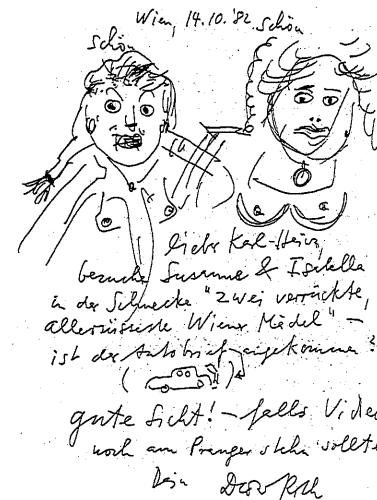 Wien, 14.10.'82 schön
schön
lieber Karl-Heinz,
besuche Susanne & Isabella
in der Schnecke "zwei verrückte,
allersüsseste Wiener Mädel" –
ist der Autobrief angekommen?
gute Sicht! – falls Video
noch am Pranger stehn sollte
Dein